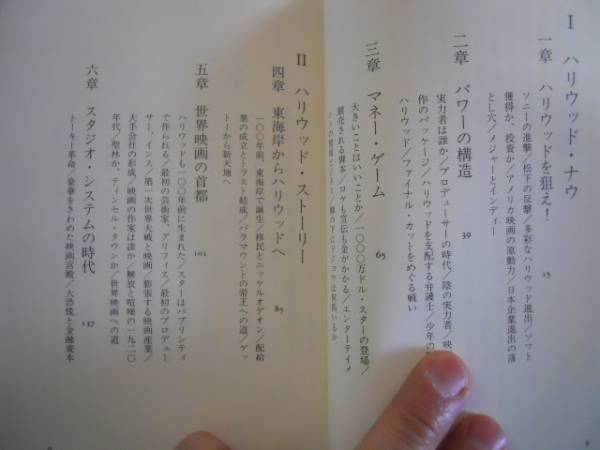 I ハリウッド・ナウ
一章 ハリウッドを狙え! 13
ソニーの進撃/松下の反撃/多彩なハリウッド進出/ソフト
獲得か、投資か/アメリカ映画の原動力/日本企業進出の落
とし穴/メジャーとインディー
二章 パワーの構造 39
実力者は誰か/プロデューサーの時代/陰の実力者/映
作のパッケージ/ハリウッドを支配する弁護士/少年の
ハリウッド/ファイナル・カットをめぐる戦い
三章 マネー・ゲーム 65
大きいことはいいことか/一〇〇〇万ドル・スターの登場/
競売される脚本/ロケも宣伝も金がかかる/エンターテイメ
II ハリウッド・ストーリー
四章 東海岸からハリウッドへ 85
一〇〇年前、東海岸で誕生/移民とニッケルオデオン/配給
業の成立とトラスト結成/パラマウントの帝王への道/ゲッ
トーから新天地へ
五章 世界映画の首都 101
ハリウッドも一〇〇年前に生まれた/スターはパブリシティ
で作られる/最初の芸術家、グリフィス/最初のプロデュー
サー、インス/第一次世界大戦と映画/膨張する映画産業/
大手会社の形成/映画の作家は誰か/解放と喧噪の一九二〇
年代/聖林か、ティンセル・タウンか/世界映画への道
六章 スタジオ・システムの時代 137
トーキー革命/豪華をきわめた映画宮殿/大恐慌と金融資本